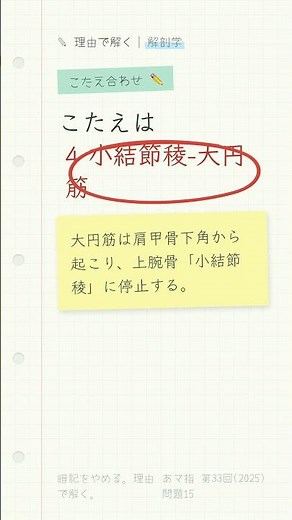 理由で解く｜解剖学
こたえ合わせ
こたえは
4 小結節稜-大円
筋
大円筋は肩甲骨下角から
起こり、上腕骨「小結節
稜」に停止する。
暗記をやめる。理由で解く。
あマ指 第33回(2025) 問題15